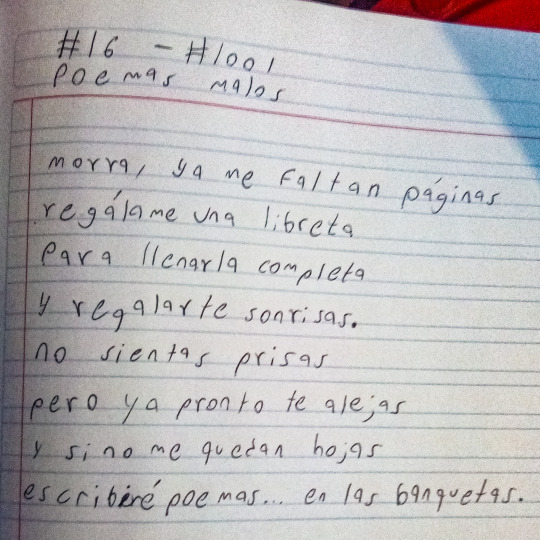 #16 - #1001
poemas malos
morra, ya me faltan páginas
regálame una libreta
para llenarla completa
y regalarte sonrisas.
no sientas prisas
pero ya pronto te alejas
y si no me quedan hojas
escribiré poemas... en las banquetas.